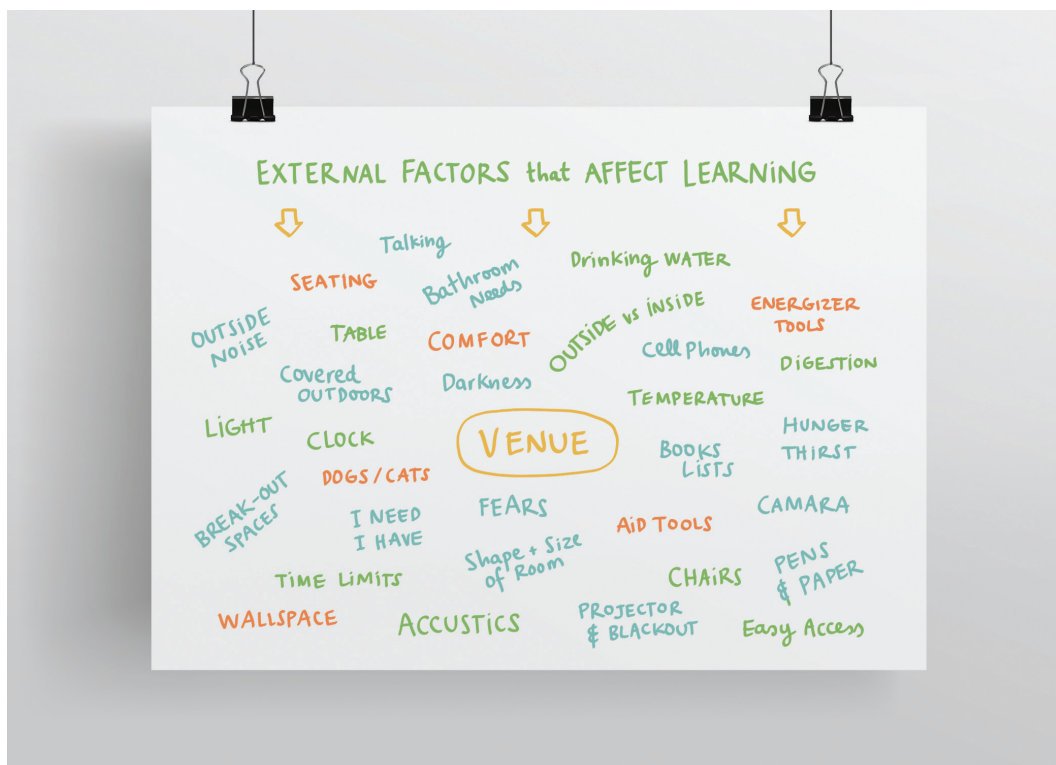 EXTERNAL FACTORS that AFFECT LEARNING
Talking
SEATING
Bathroom
Needs
Drinking WATER
OUTSIDE
NOISE
TABLE
COMFORT
OUTSIDE vs INSIDE
ENERGIZER
TOOLS
Cell Phones
DIGESTION
Covered
OUTDOORS
Darkness
TEMPERATURE
LIGHT
CLOCK
VENUE
BOOKS
LISTS
HUNGER
THIRST
DOGS / CATS
BREAK-OUT
SPACES
I NEED
I HAVE
FEARS
AID TOOLS
CAMARA
Shape + Size
of Room
TIME LIMITS
CHAIRS
PENS
& PAPER
WALLSPACE
ACCUSTICS
PROJECTOR
& BLACKOUT
Easy Access